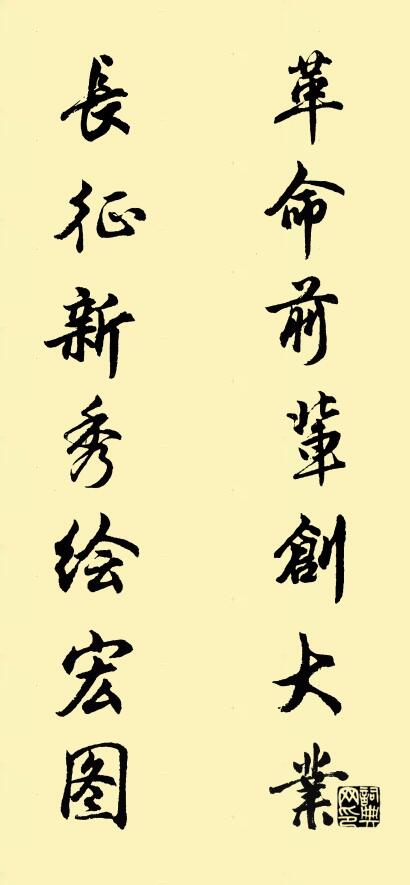 革命前輩創大業
長征新秀绘宏图
詞典网印